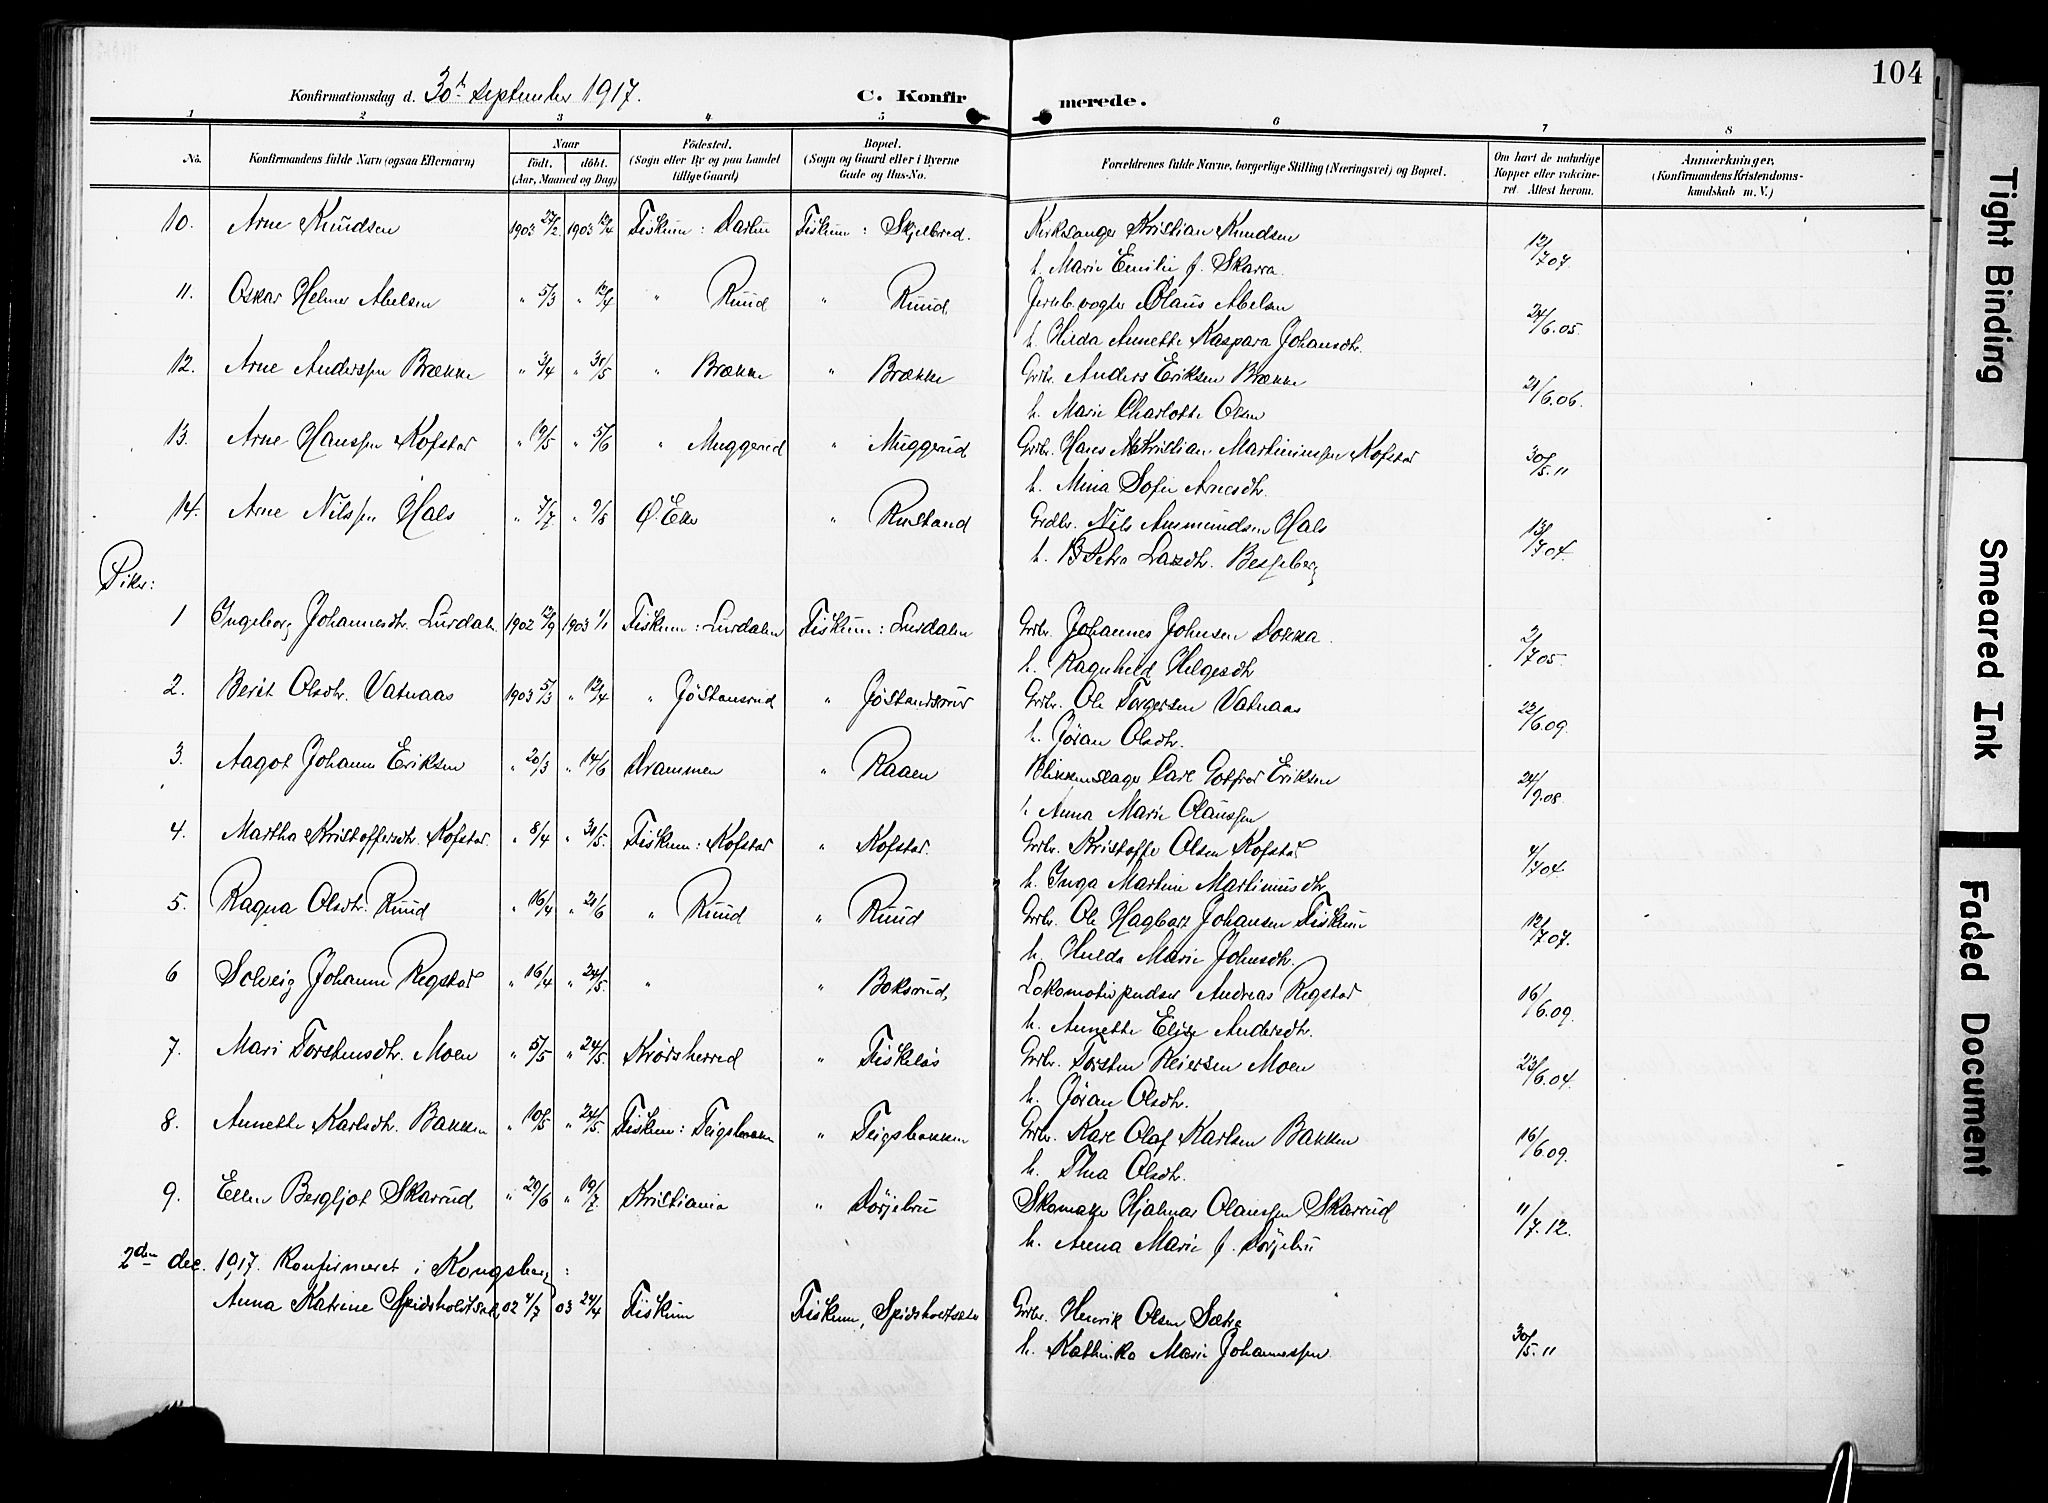 104
Konfirmationsdag d. 30te September 1917.
C. Konfirmerede.
1 2 3 4 5 6 7 8
No. Konfirmandens fulde Navn (ogsaa Efternavn) Naar født. døbt. (Aar, Maaned og Dag) Födested. (Sogn eller By og paa Landet tillige Gaard) Bopæl. (Sogn og Gaard eller i Byerne Gade og Hus-No. Forældrenes fulde Navne, borgerlige Stilling (Næringsvei) og Bopæl. Om havt de naturlige Kopper eller vakcineret. Attest herom. Anmærkninger, (Konfirmandens Kristendomskundskab m. V.)
10. Arne Knudsen 1903 27/2 1903 12/4 Fiskum: Darbu Fiskum: Skjelbred. Kirkesanger Kristian Knudsen 12/7 07.
h. Marie Emilie f. Skarra.
11. Oskar Helmer Abelsen " 5/3 " 12/4 " Ruud " Ruud Jernb.vogter Olaus Abelsen 24/6.05.
h. Hilda Annette Kaspara Johansdtr.
12. Arne Anderssen Brække " 3/4 " 31/5 " Brække " Brække Grdbr. Anders Eriksen Brække 21/6.06.
h. Marie Charlotte Olsen
13. Arne Hanssen Kofstad " 19/5 " 5/6 " Muggerud " Muggerud Grdbr. Hans Kristian Martiniussen Kofstad 30/5.11
h. Mina Sofie Arnesdtr.
14. Arne Nilssen Hals " 7/7 " 9/8 Ø. Eker " Rustand Grdbr. Nils Aasmundsen Hals 13/7 04.
h. Petra Larsdtr. Besseberg
Piker:
1 Ingeborg Johannesdtr. Lurdalen 1902 12/9 1903 1/1 Fiskum: Lurdalen Fiskum: Lurdalen Grdbr. Johannes Johnsen Dokka. 2/7 05.
h. Ragnhild Helgesdtr
2. Berit Olsdtr. Vatnaas 1903 5/3 " 12/4 " Jøstansrud " Jøstandsrud Grdbr. Ole Torgersen Vatnaas 22/6 09.
h. Jøran Olsdtr.
3. Aagot Johanne Eriksen " 20/3 " 14/6 Drammen " Raaen Blikkenslager Carl Gotfred Eriksen 24/9.08.
h. Anna Marie Olaussen
4. Martha Kristoffersdtr. Kofstad. " 8/4 " 31/5. Fiskum: Kofstad " Kofstad. Grdbr. Kristoffer Olsen Kofstad 4/7 04.
h. Inga Martine Martiniusdtr
5. Ragna Olsdtr. Ruud " 16/4 " 21/6 " Ruud " Ruud Grdbr. Ole Hagbart Johansen Fiskum 12/7 07.
h. Hulda Marie Johnsdtr.
6 Solveig Johanne Regstad " 16/4 " 24/5. " " Boksrud, Lokomotivpudser Andreas Regstad 16/6.09.
h. Annette Elise Andersdtr.
7. Mari Torstensdtr. Moen " 5/5 " 24/5. Krødsherred " Fiskeløs Grdbr. Torsten Reiersen Moen 23/6.04.
h. Jøran Olsdtr.
8. Annette Karlsdtr. Bakken " 10/5 " 24/5. Fiskum: Teigsbakken " Teigsbakken Grdbr. Karl Olaf Karlsen Bakken 16/6.09.
h. Thea Olsdtr.
9. Ellen Bergljot Skarrud " 29/6 " 19/7. Kristiania " Dørjebru Skomaker Hjalmar Olaussen Skarrud 11/7.12.
h. Anna Marie f. Dørjebru
2den dec. 1917. Konfirmeret i Kongsberg:
Anna Katrine Spidsholtsæter 02 4/7 03 24/4 Fiskum Fiskum, Spidsholtsæter Grdbr. Henrik Olsen Sætra 30/5.11
h. Kathinka Marie Johannessen
Tight Binding
Smeared Ink
Faded Document